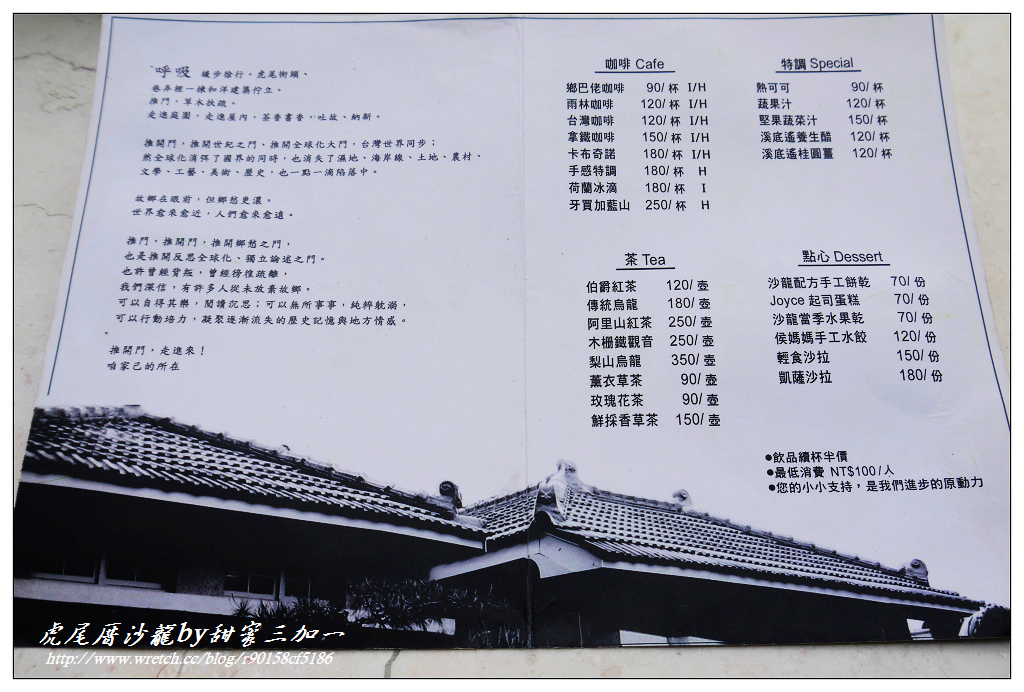 呼吸 緩步徐行、虎尾街頭、
巷弄裡一棟和洋建築佇立。
推門,草木扶疏。
走進庭園、走進屋內,茶香書香,吐故、納新。
推開門,推開世紀之門、推開全球化大門,台灣世界同步;
然全球化消弭了國界的同時,也消失了濕地、海岸線、土地、農村、
文學、工藝、美術、歷史,也一點一滴陷落中。
故鄉在眼前,但鄉愁更濃。
世界愈來愈近,人們愈來愈遠。
推門,推開門,推開鄉愁之門,
也是推開反思全球化、獨立論述之門。
也許曾經背叛,曾經徬徨疏離,
我們深信,有許多人從未放棄故鄉。
可以自得其樂,閱讀沉思;可以無所事事,純粹耽溺,
可以行動培力,凝聚逐漸流失的歷史記憶與地方情感。
推開門,走進來!
咱家己的所在
咖啡 Cafe
鄉巴佬咖啡 90/ 杯 I/H
雨林咖啡 120/ 杯 I/H
台灣咖啡 120/ 杯 I/H
拿鐵咖啡 150/ 杯 I/H
卡布奇諾 180/ 杯 I/H
手感特調 180/ 杯 H
荷蘭冰滴 180/ 杯 I
牙買加藍山 250/ 杯 H
特調 Special
熱可可 90/ 杯
蔬果汁 120/ 杯
堅果蔬菜汁 150/ 杯
溪底遙養生醋 120/ 杯
溪底遙桂圓薑 120/ 杯
茶 Tea
伯爵紅茶 120/ 壺
傳統烏龍 180/ 壺
阿里山紅茶 250/ 壺
木柵鐵觀音 250/ 壺
梨山烏龍 350/ 壺
薰衣草茶 90/ 壺
玫瑰花茶 90/ 壺
鮮採香草茶 150/ 壺
點心 Dessert
沙龍配方手工餅乾 70/ 份
Joyce 起司蛋糕 70/ 份
沙龍當季水果乾 70/ 份
侯媽媽手工水餃 120/ 份
輕食沙拉 150/ 份
凱薩沙拉 180/ 份
●飲品續杯半價
●最低消費 NT$100/人
●您的小小支持,是我們進步的原動力
虎尾厝沙龍by甜蜜三加一
http://www.wretch.cc/blog/r90158cf5186